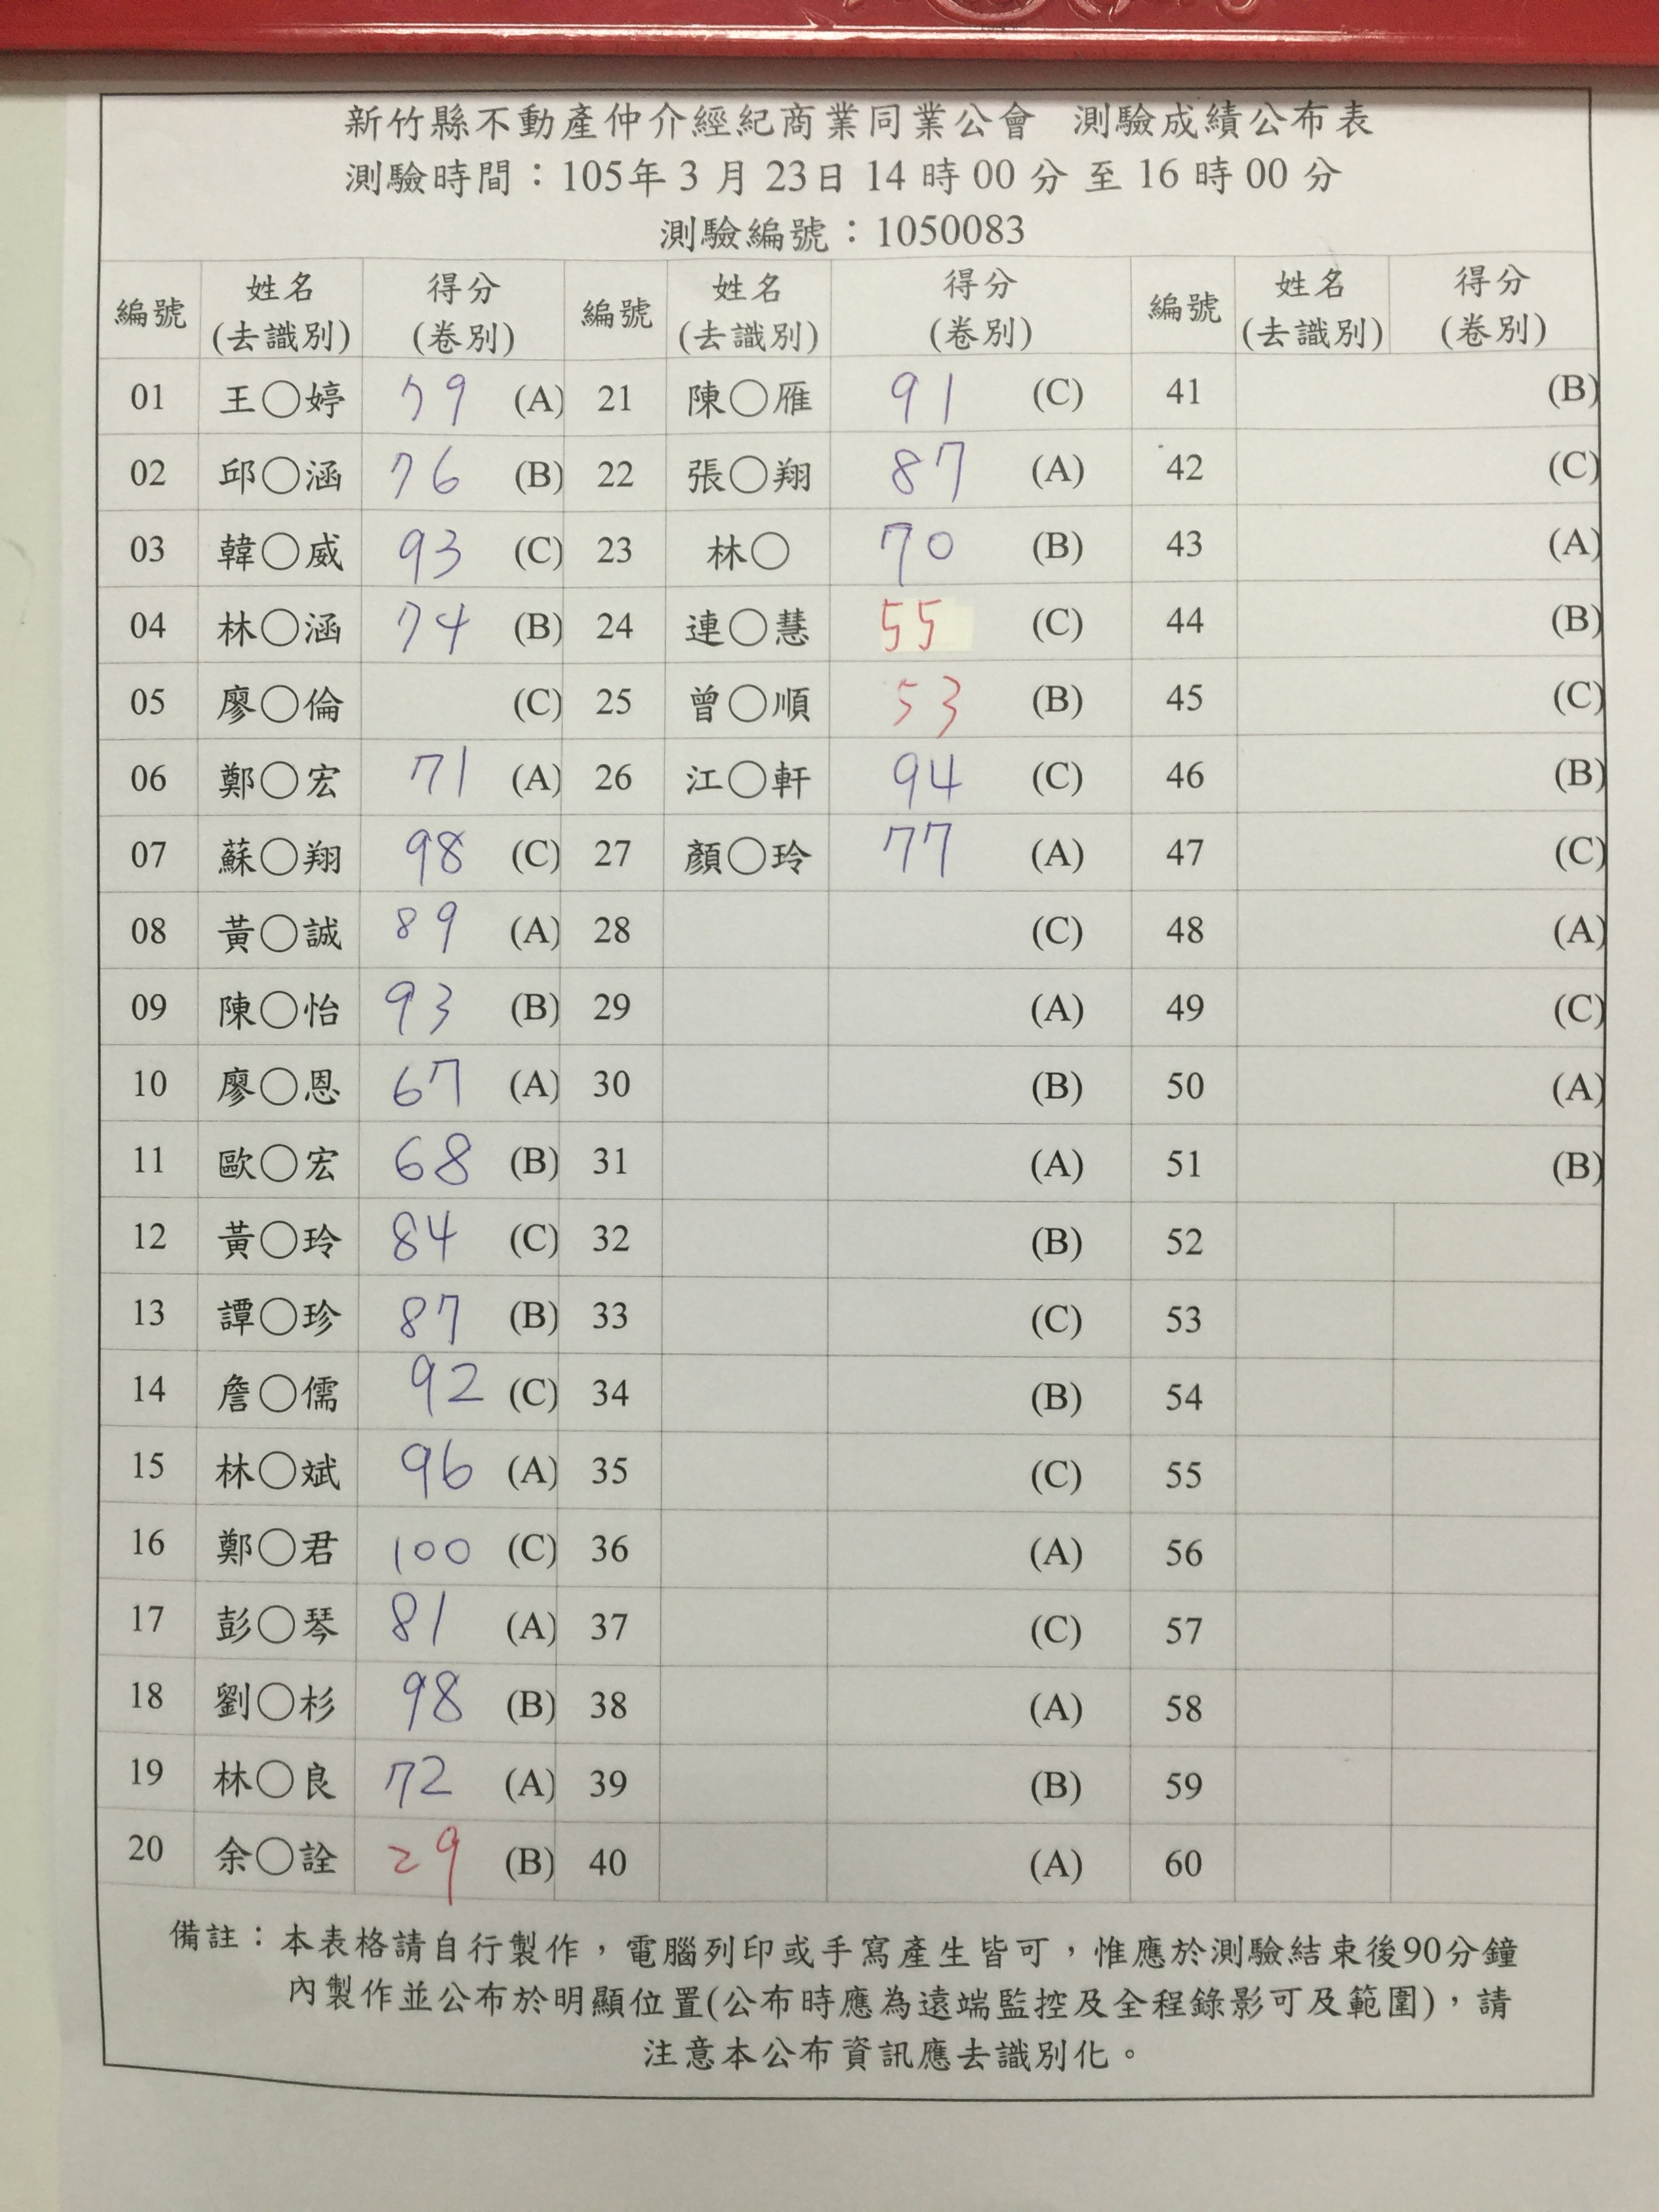 新竹縣不動產仲介經紀商業同業公會 測驗成績公布表
測驗時間：105年 3 月 23日 14 時 00 分 至 16 時 00 分
測驗編號：1050083
編號 姓名(去識別) 得分(卷別) 編號 姓名(去識別) 得分(卷別) 編號 姓名(去識別) 得分(卷別)
01 王○婷 79 (A) 21 陳○雁 91 (C) 41 (B)
02 邱○涵 76 (B) 22 張○翔 87 (A) 42 (C)
03 韓○威 93 (C) 23 林○ 70 (B) 43 (A)
04 林○涵 74 (B) 24 連○慧 55 (C) 44 (B)
05 廖○倫 (C) 25 曾○順 53 (B) 45 (C)
06 鄭○宏 71 (A) 26 江○軒 94 (C) 46 (B)
07 蘇○翔 98 (C) 27 顏○玲 77 (A) 47 (C)
08 黃○誠 89 (A) 28 (C) 48 (A)
09 陳○怡 93 (B) 29 (A) 49 (C)
10 廖○恩 67 (A) 30 (B) 50 (A)
11 歐○宏 68 (B) 31 (A) 51 (B)
12 黃○玲 84 (C) 32 (B) 52
13 譚○珍 87 (B) 33 (C) 53
14 詹○儒 92 (C) 34 (B) 54
15 林○斌 96 (A) 35 (C) 55
16 鄭○君 100 (C) 36 (A) 56
17 彭○琴 81 (A) 37 (C) 57
18 劉○杉 98 (B) 38 (A) 58
19 林○良 72 (A) 39 (B) 59
20 余○詮 29 (B) 40 (A) 60
備註：本表格請自行製作，電腦列印或手寫產生皆可，惟應於測驗結束後90分鐘
內製作並公布於明顯位置(公布時應為遠端監控及全程錄影可及範圍)，請
注意本公布資訊應去識別化。